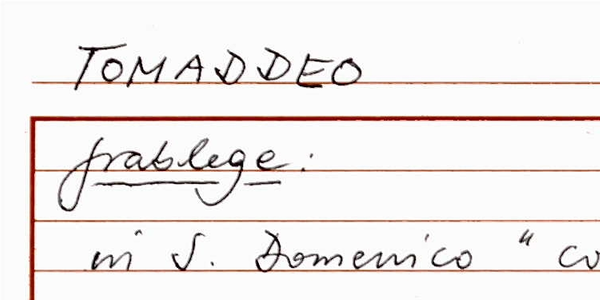 TOMADDEO
Grablege:
in S. Domenico " co